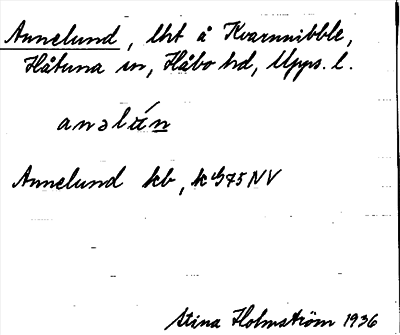 Annelund, lht å Kvarnnibble,
Håtuna sn, Håbo hd, Upps. l.
Annelund kb, k
Stina Holmström 1936